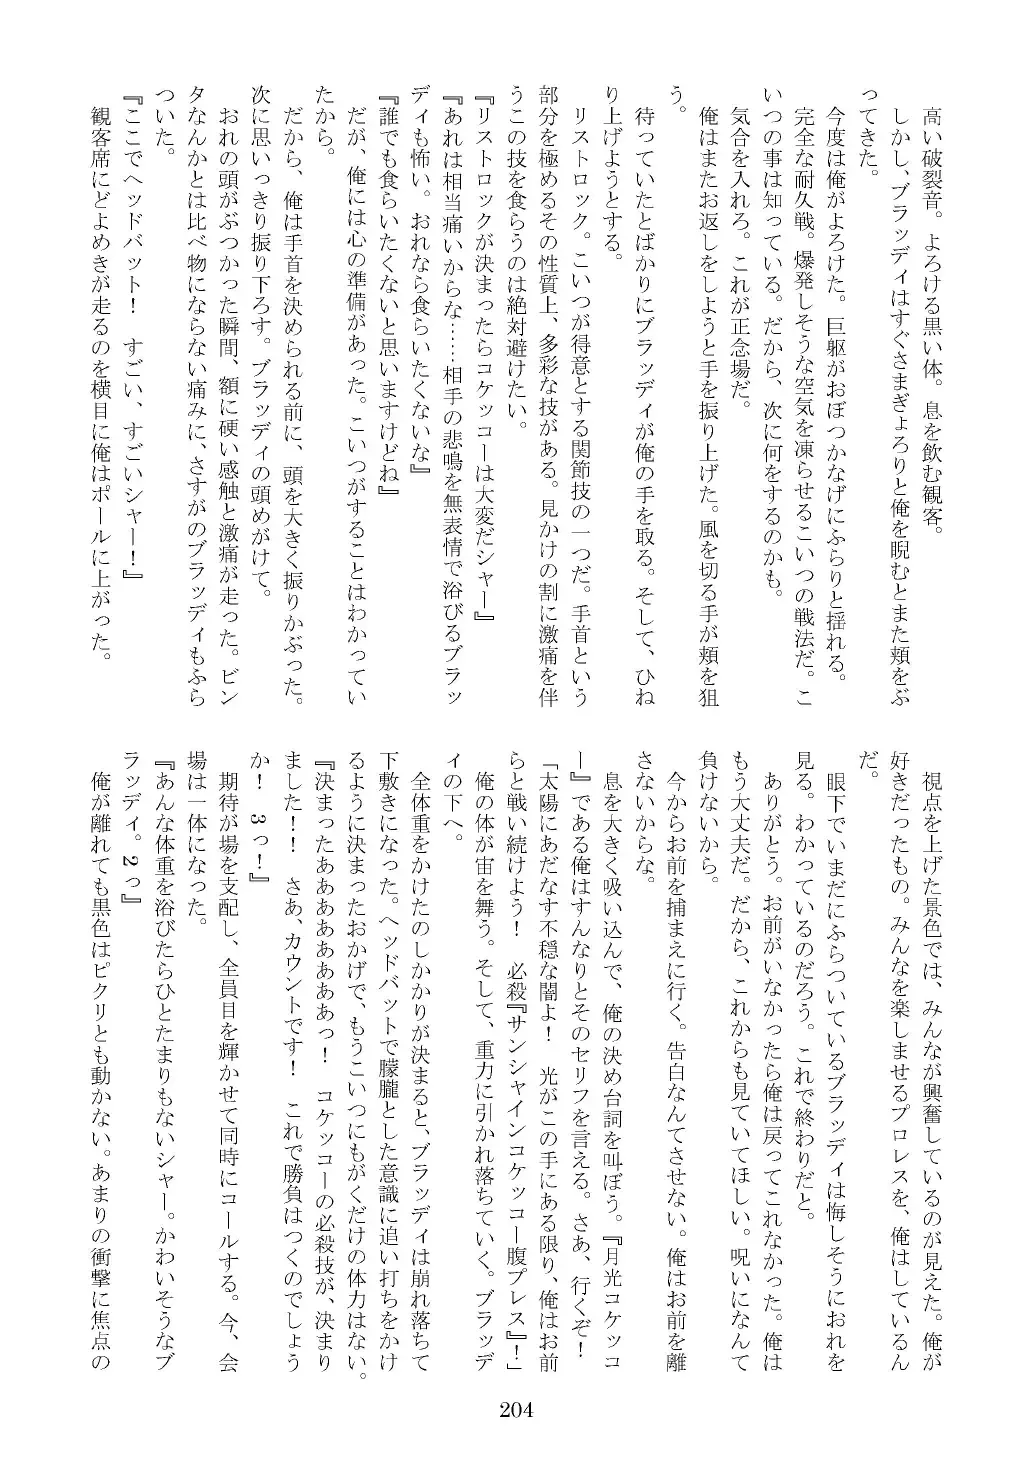 高い破裂音。よろける黒い体。息を飲む観客。
しかし、ブラッディはすぐさまぎょろりと俺を睨むとまた頬をぶ
ってきた。
今度は俺がよろけた。巨躯がおぼつかなげにふらりと揺れる。
完全な耐久戦。爆発しそうな空気を凍らせるこいつの戦法だ。こ
いつの事は知っている。だから、次に何をするのかも。
気合を入れろ。これが正念場だ。
俺はまたお返しをしようと手を振り上げた。風を切る手が頬を狙
う。
待っていたとばかりにブラッディが俺の手を取る。そして、ひね
り上げようとする。
リストロック。こいつが得意とする関節技の一つだ。手首という
部分を極めるその性質上、多彩な技がある。見かけの割に激痛を伴
うこの技を食らうのは絶対避けたい。
『リストロックが決まったらコケッコーは大変だシャー』
『あれは相当痛いからな……相手の悲鳴を無表情で浴びるブラッ
ディも怖い。おれなら食らいたくないな』
『誰でも食らいたくないと思いますけどね』
だが、俺には心の準備があった。こいつがすることはわかってい
たから。
だから、俺は手首を決められる前に、頭を大きく振りかぶった。
次に思いっきり振り下ろす。ブラッディの頭めがけて。
おれの頭がぶつかった瞬間、額に硬い感触と激痛が走った。ビン
タなんかとは比べ物にならない痛みに、さすがのブラッディもふら
ついた。
『ここでヘッドバット！　すごい、すごいシャー！』
観客席にどよめきが走るのを横目に俺はポールに上がった。
視点を上げた景色では、みんなが興奮しているのが見えた。俺が
好きだったもの。みんなを楽しませるプロレスを、俺はしているん
だ。
眼下でいまだにふらついているブラッディは悔しそうにおれを
見る。わかっているのだろう。これで終わりだと。
ありがとう。お前がいなかったら俺は戻ってこれなかった。俺は
もう大丈夫だ。だから、これからも見ていてほしい。呪いになんて
負けないから。
今からお前を捕まえに行く。告白なんてさせない。俺はお前を離
さないからな。
息を大きく吸い込んで、俺の決め台詞を叫ぼう。『月光コケッコ
ー』である俺はすんなりとそのセリフを言える。さあ、行くぞ！
「太陽にあだなす不穏な闇よ！　光がこの手にある限り、俺はお前
らと戦い続けよう！　必殺『サンシャインコケッコー腹プレス』！」
俺の体が宙を舞う。そして、重力に引かれ落ちていく。ブラッデ
ィの下へ。
全体重をかけたのしかかりが決まると、ブラッディは崩れ落ちて
下敷きになった。ヘッドバットで朦朧とした意識に追い打ちをかけ
るように決まったおかげで、もうこいつにもがくだけの体力はない。
『決まったああああああああっ！　コケッコーの必殺技が、決まり
ました！！　さあ、カウントです！　これで勝負はつくのでしょう
か！　3っ！』
期待が場を支配し、全員目を輝かせて同時にコールする。今、会
場は一体になった。
『あんな体重を浴びたらひとたまりもないシャー。かわいそうなブ
ラッディ。2っ』
俺が離れても黒色はピクリとも動かない。あまりの衝撃に焦点の
204